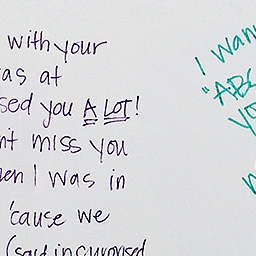 with your
as at
sed you A LOT!
nt miss you
en I was in
'cause we
(said in surprised
I wan
"ABC
yo